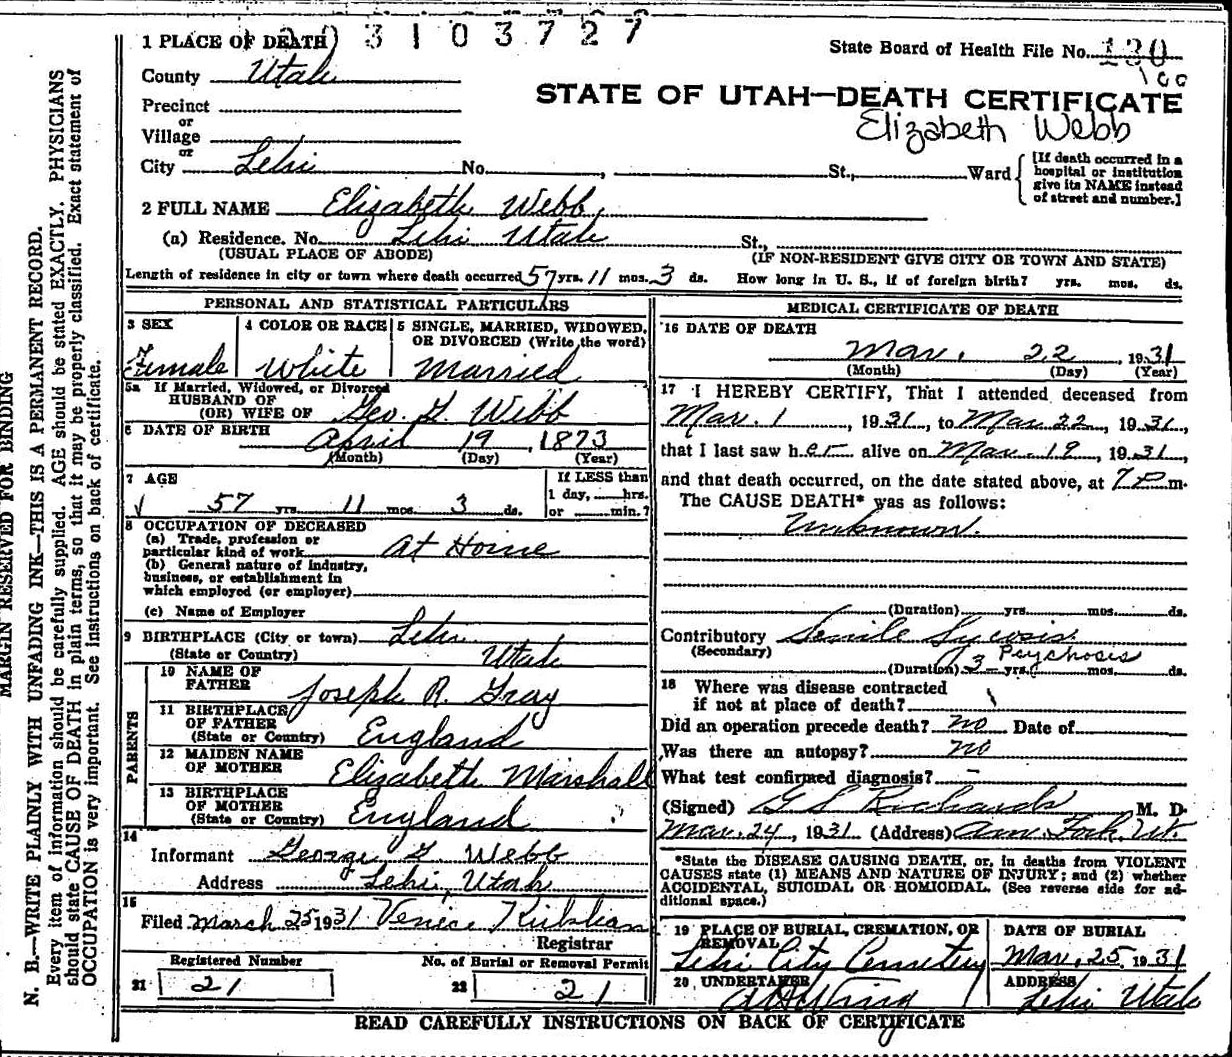 3 1 0 3 7 2 7
1 PLACE OF DEATH
State Board of Health File No. 130
100
County Utah
STATE OF UTAH—DEATH CERTIFICATE
Elizabeth Webb
Precinct
or
Village
or
City Lehi No. , St., Ward
[If death occurred in a
hospital or institution
give its NAME instead
of street and number.]
2 FULL NAME Elizabeth Webb
(a) Residence. No. Lehi Utah St.,
(USUAL PLACE OF ABODE) (IF NON-RESIDENT GIVE CITY OR TOWN AND STATE)
Length of residence in city or town where death occurred 57 yrs. 11 mos. 3 ds. How long in U. S., if of foreign birth? yrs. mos. ds.
PERSONAL AND STATISTICAL PARTICULARS
3 SEX
Female
4 COLOR OR RACE
White
5 SINGLE, MARRIED, WIDOWED,
OR DIVORCED (Write the word)
Married
5a If Married, Widowed, or Divorced
HUSBAND OF
(OR) WIFE OF Geo. G. Webb
6 DATE OF BIRTH April 19, 1873
(Month) (Day) (Year)
7 AGE
57 yrs 11 mos. 3 ds.
If LESS than
1 day, hrs.
or min.?
8 OCCUPATION OF DECEASED
(a) Trade, profession or
particular kind of work At Home
(b) General nature of industry,
business, or establishment in
which employed (or employer)
(c) Name of Employer
9 BIRTHPLACE (City or town) Lehi
(State or Country) Utah
PARENTS
10 NAME OF
FATHER Joseph R. Gray
11 BIRTHPLACE
OF FATHER
(State or Country) England
12 MAIDEN NAME
OF MOTHER Elizabeth Marshall
13 BIRTHPLACE
OF MOTHER
(State or Country) England
14
Informant George G. Webb
Address Lehi, Utah
15
Filed March 25 1931
Registrar
Registered Number
21 21
No. of Burial or Removal Permit
22 21
MEDICAL CERTIFICATE OF DEATH
16 DATE OF DEATH
Mar. 22, 1931
(Month) (Day) (Year)
17 I HEREBY CERTIFY, That I attended deceased from
Mar. 1, 1931, to Mar. 22, 1931,
that I last saw her alive on Mar. 19, 1931,
and that death occurred, on the date stated above, at 7 P m.
The CAUSE DEATH* was as follows:
Unknown.
(Duration) yrs. mos. ds.
Contributory Senile
(Secondary) Psychosis
(Duration) 3 yrs. mos. ds.
18 Where was disease contracted
if not at place of death?
Did an operation precede death? no Date of
Was there an autopsy? no
What test confirmed diagnosis? -
(Signed) G S Richards M. D.
Mar. 24, 1931 (Address) Am. Fork, Ut.
*State the DISEASE CAUSING DEATH, or, in deaths from VIOLENT
CAUSES state (1) MEANS AND NATURE OF INJURY; and (2) whether
ACCIDENTAL, SUICIDAL OR HOMICIDAL. (See reverse side for ad-
ditional space.)
19 PLACE OF BURIAL, CREMATION, OR
REMOVAL
Lehi City Cemetery
DATE OF BURIAL
Mar. 25, 1931
20 UNDERTAKER
ADDRESS
Lehi Utah
READ CAREFULLY INSTRUCTIONS ON BACK OF CERTIFICATE
MARGIN RESERVED FOR BINDING
N. B.—WRITE PLAINLY WITH UNFADING INK—THIS IS A PERMANENT RECORD.
Every item of information should be carefully supplied. AGE should be stated EXACTLY. PHYSICIANS
should state CAUSE OF DEATH in plain terms, so that it may be properly classified. Exact statement of
OCCUPATION is very important. See instructions on back of certificate.